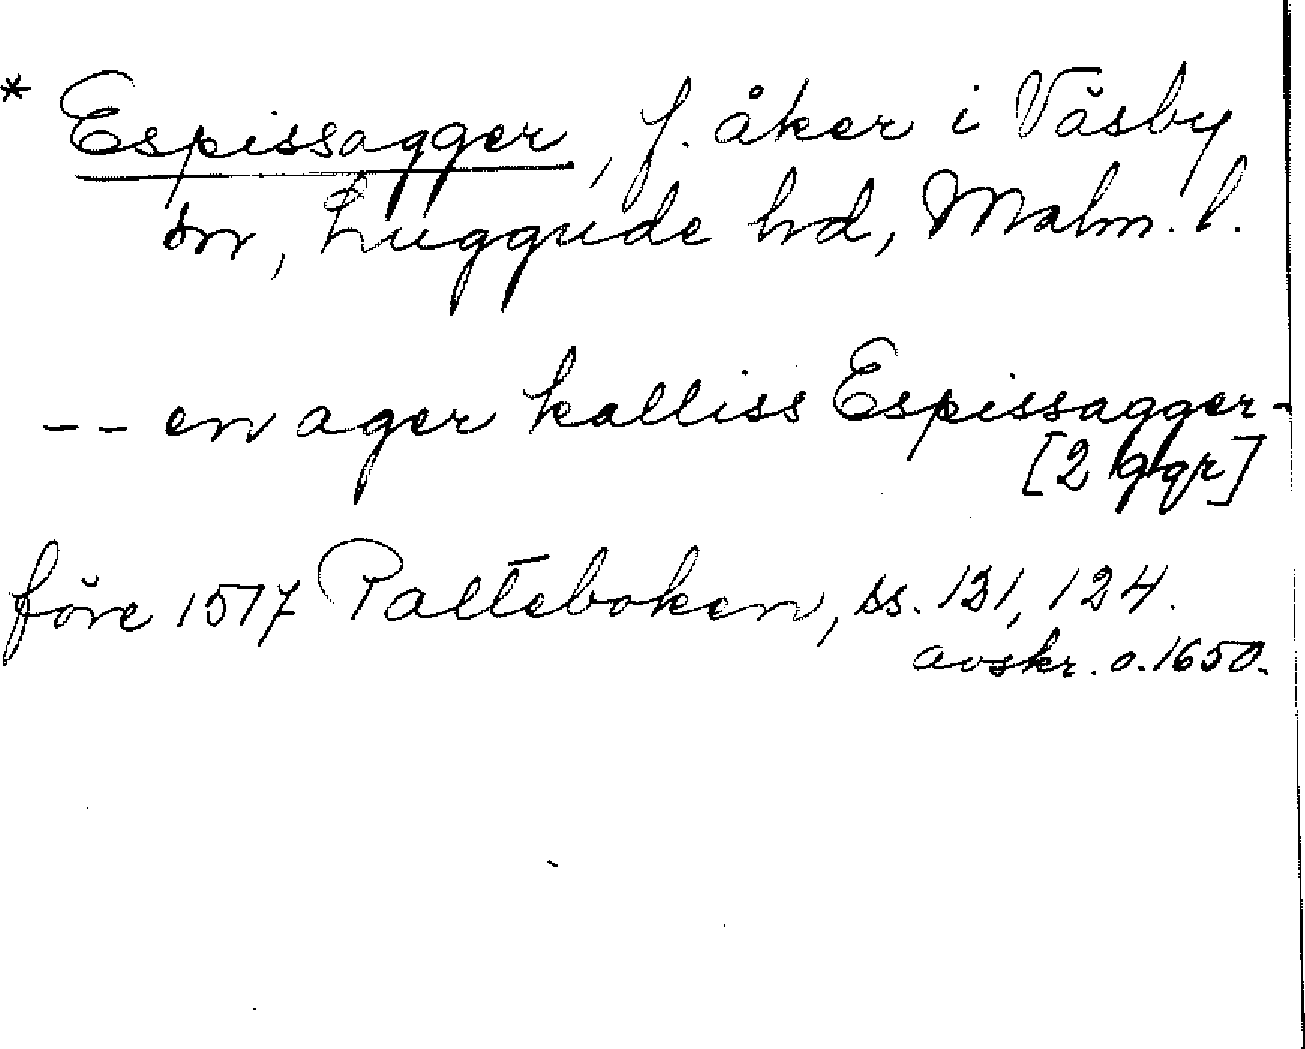 * Espissagger, f. åker i Väsby
sn, Luggude hd, Malm. l.
-- en ager kalliss Espissagger-
[2 ggr]
före 1517 Palteboken, ss. 121, 124.
avskr. o. 1650.